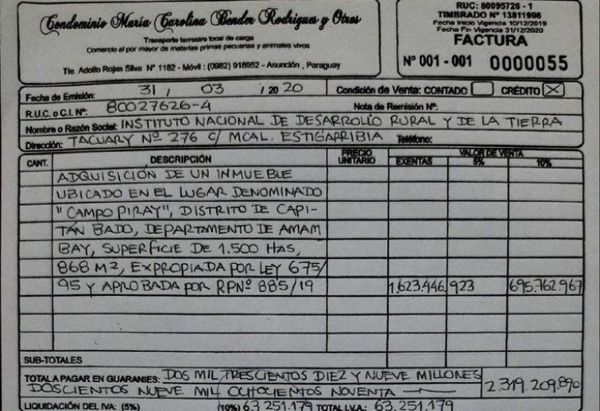 Condominio María Carolina Bender Rodrigues y Otros
Transporte terrestre local de carga
Comercio al por mayor de materias primas pecuarias y animales vivos
Tte. Adolfo Rojas Silva N° 1182 - Móvil : (0982) 918952 - Asunción , Paraguay
RUC: 80095726 - 1
TIMBRADO N° 13811996
Fecha Inicio Vigencia 10/12/2019
Fecha Fin Vigencia 31/12/2020
FACTURA
N° 001 - 001 0000055
Fecha de Emisión: 31 / 03 / 20 20 Condición de Venta: CONTADO CRÉDITO X
R.U.C. o C.I. N°: 80027626-4 Nota de Remisión N°:
Nombre o Razón Social: INSTITUTO NACIONAL DE DESARROLLO RURAL Y DE LA TIERRA
Dirección: TACUARY Nº 276 C/ MCAL. ESTIGARRIBIA Teléfono:
CANT. DESCRIPCIÓN PRECIO UNITARIO VALOR DE VENTA
EXENTAS 5% 10%
ADQUISICIÓN DE UN INMUEBLE
UBICADO EN EL LUGAR DENOMINADO
"CAMPO PIRAY", DISTRITO DE CAPI-
TÁN BADO, DEPARTAMENTO DE AMAM
BAY, SUPERFICIE DE 1.500 HAS,
868 M², EXPROPIADA POR LEY 675/
95 Y APROBADA POR RPNº 885/19 1,623.446,923 695.762.967
SUB-TOTALES
TOTAL A PAGAR EN GUARANIES: DOS MIL TRESCIENTOS DIEZ Y NUEVE MILLONES
DOSCIENTOS NUEVE MIL OCHOCIENTOS NOVENTA 2.319.209.890
LIQUIDACIÓN DEL IVA: (5%) (10%) 63.251.179 TOTAL I.V.A.: 63.251.179